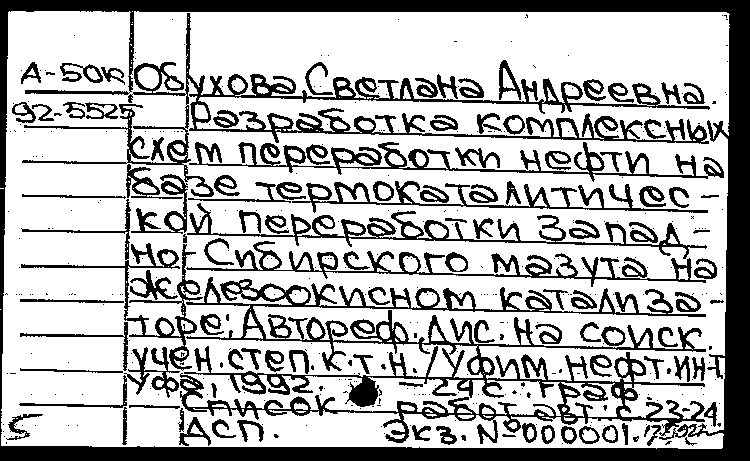 А-50к Обухова, Светлана Андреевна.
92-5525 Разработка комплексных
схем переработки нефти на
базе термокаталитичес-
кой переработки Запад-
но-Сибирского мазута на
железоокисном катализа-
торе: Автореф. дис. на соиск.
учен. степ. к. т. н. / Уфим. нефт. ин-т
Уфа, 1992. - 24 с.: граф.
Список работ авт.: с. 23-24
5 ДСП. Экз. № 000001.